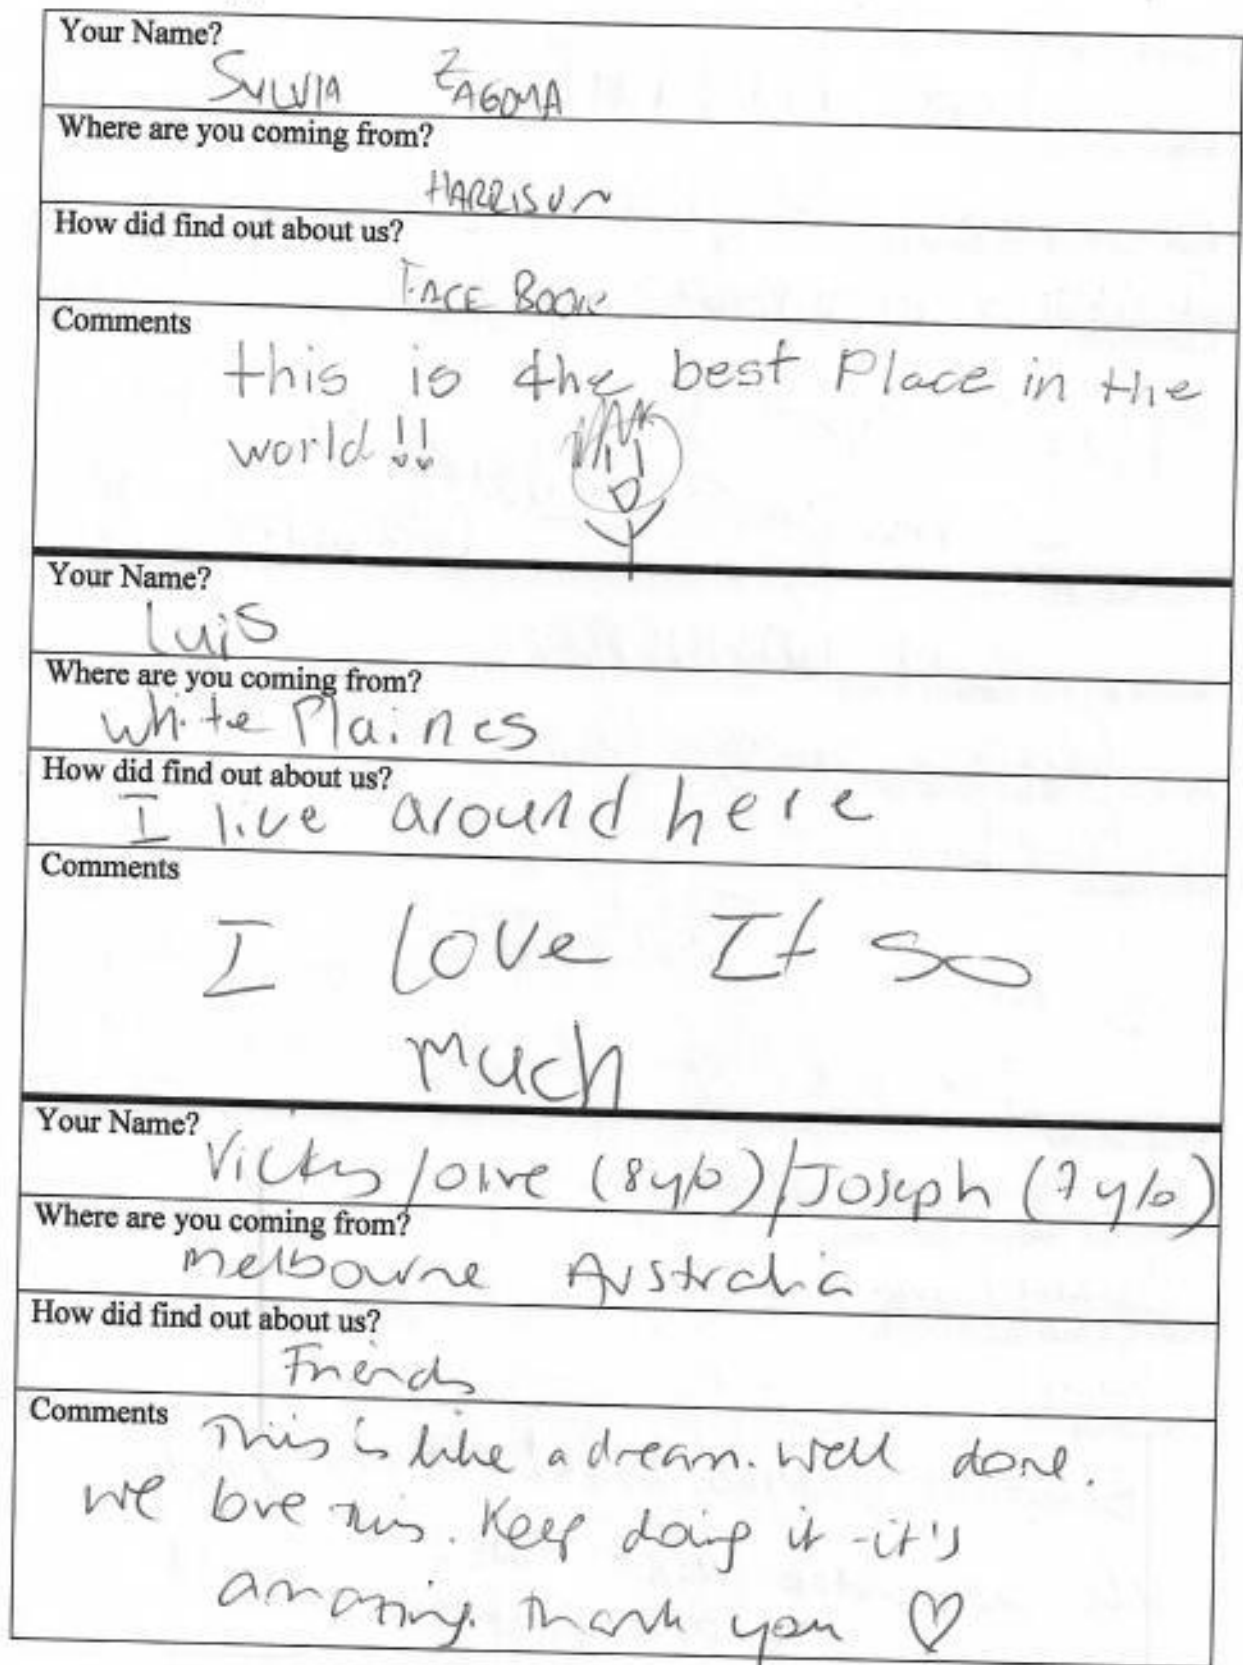 Your Name?
SYLVIA ZAGOMA
Where are you coming from?
HARRISON
How did find out about us?
FACE BOOK
Comments
this is the best Place in the
world!!
Your Name?
Luis
Where are you coming from?
White Plaines
How did find out about us?
I live around here
Comments
I love It so
much
Your Name?
Vicky/Olive (8y/o)/Joseph (7y/o)
Where are you coming from?
Melbourne Australia
How did find out about us?
Friends
Comments
This is like a dream. Well done.
We love this. Keep doing it - it's
amazing. Thank you ♡